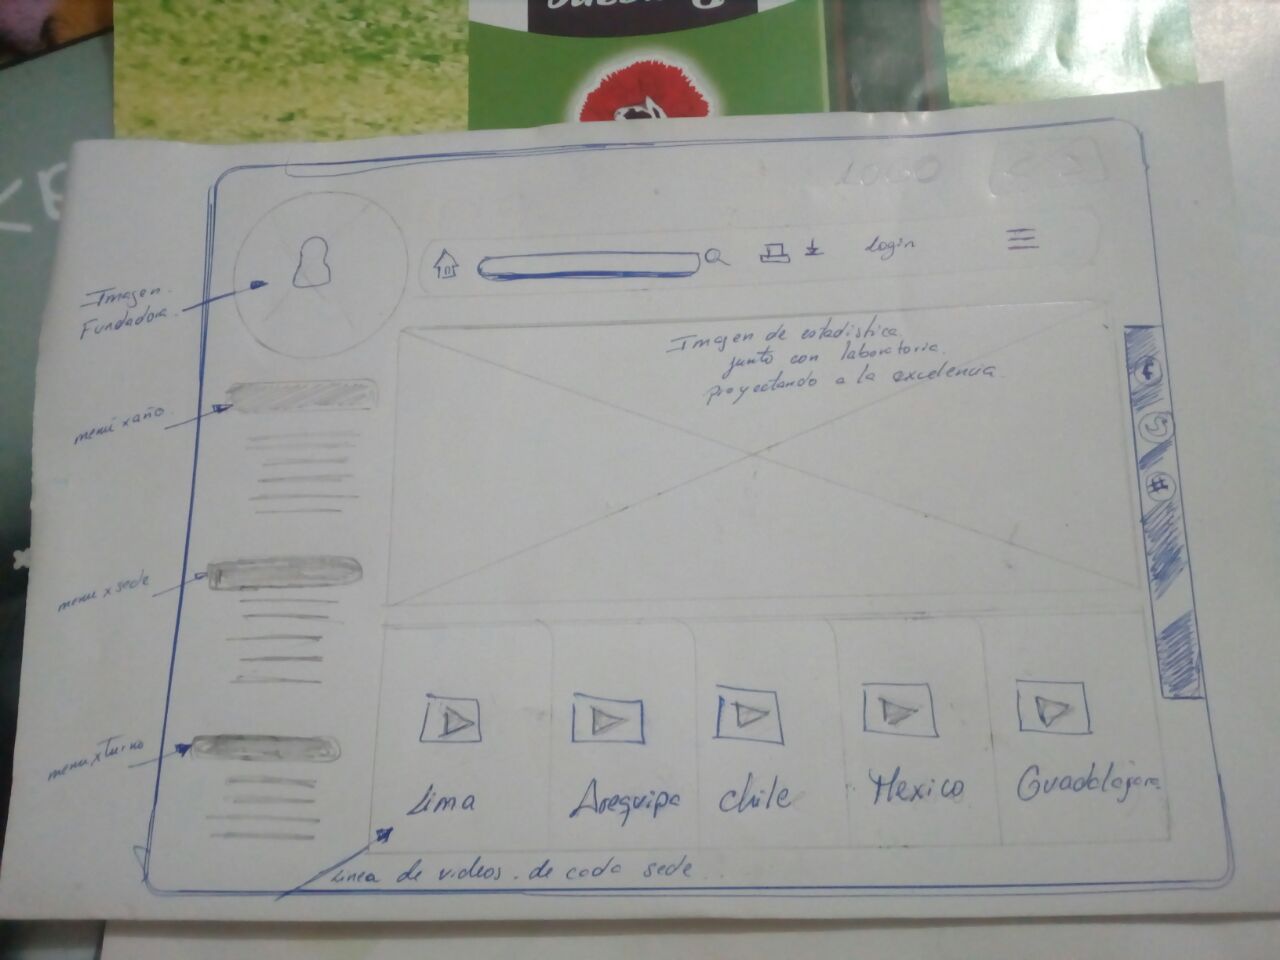 LOGO
Login
Imagen
Fundadora.
Imagen de estadistica
junto con laboratoria.
proyectando a la excelencia.
menú x año.
menu x sede
menu x Turno
Lima
Arequipa
chile
Mexico
Guadalajara
Linea de videos. de cada sede..